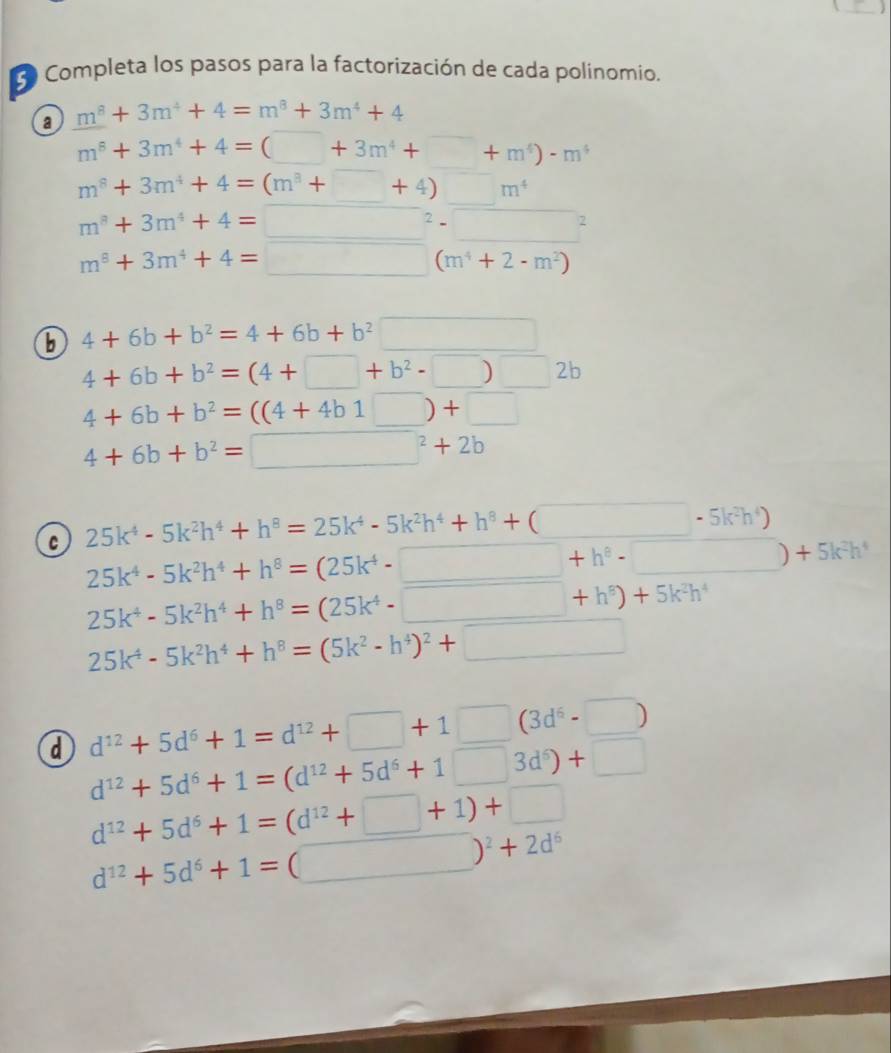 5 Completa los pasos para la factorización de cada polinomio.
a m⁸ + 3m⁴ + 4 = m⁸ + 3m⁴ + 4
m⁸ + 3m⁴ + 4 = ( + 3m⁴ + + m⁴) - m⁴
m⁸ + 3m⁴ + 4 = (m⁸ + + 4) m⁴
m⁸ + 3m⁴ + 4 = ² - ²
m⁸ + 3m⁴ + 4 = (m⁴ + 2 - m²)
b 4 + 6b + b² = 4 + 6b + b²
4 + 6b + b² = (4 + + b² - ) 2b
4 + 6b + b² = ((4 + 4b 1 ) +
4 + 6b + b² = ² + 2b
c 25k⁴ - 5k²h⁴ + h⁸ = 25k⁴ - 5k²h⁴ + h⁸ + ( - 5k²h⁴)
25k⁴ - 5k²h⁴ + h⁸ = (25k⁴ - + h⁸ - ) + 5k²h⁴
25k⁴ - 5k²h⁴ + h⁸ = (25k⁴ - + h⁸) + 5k²h⁴
25k⁴ - 5k²h⁴ + h⁸ = (5k² - h⁴)² +
d d¹² + 5d⁶ + 1 = d¹² + + 1 (3d⁶ - )
d¹² + 5d⁶ + 1 = (d¹² + 5d⁶ + 1 3d⁶) +
d¹² + 5d⁶ + 1 = (d¹² + + 1) +
d¹² + 5d⁶ + 1 = ( )² + 2d⁶